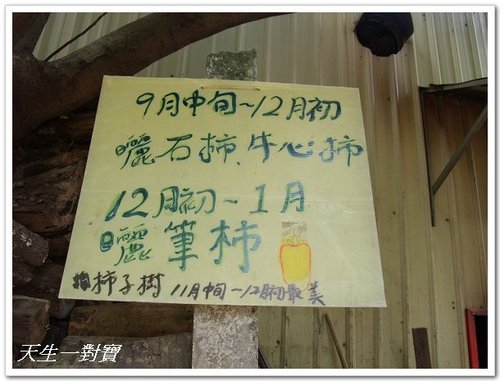 9月中旬~12月初
曬石柿、牛心柿
12月初~1月
曬筆柿
柿子樹 11月中旬~12月初最美
天生一對寶